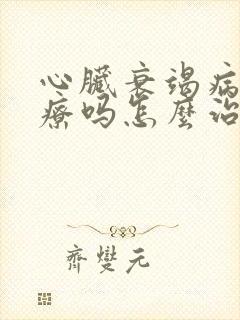 心臟衰竭病
療吗怎麼治
齊變元